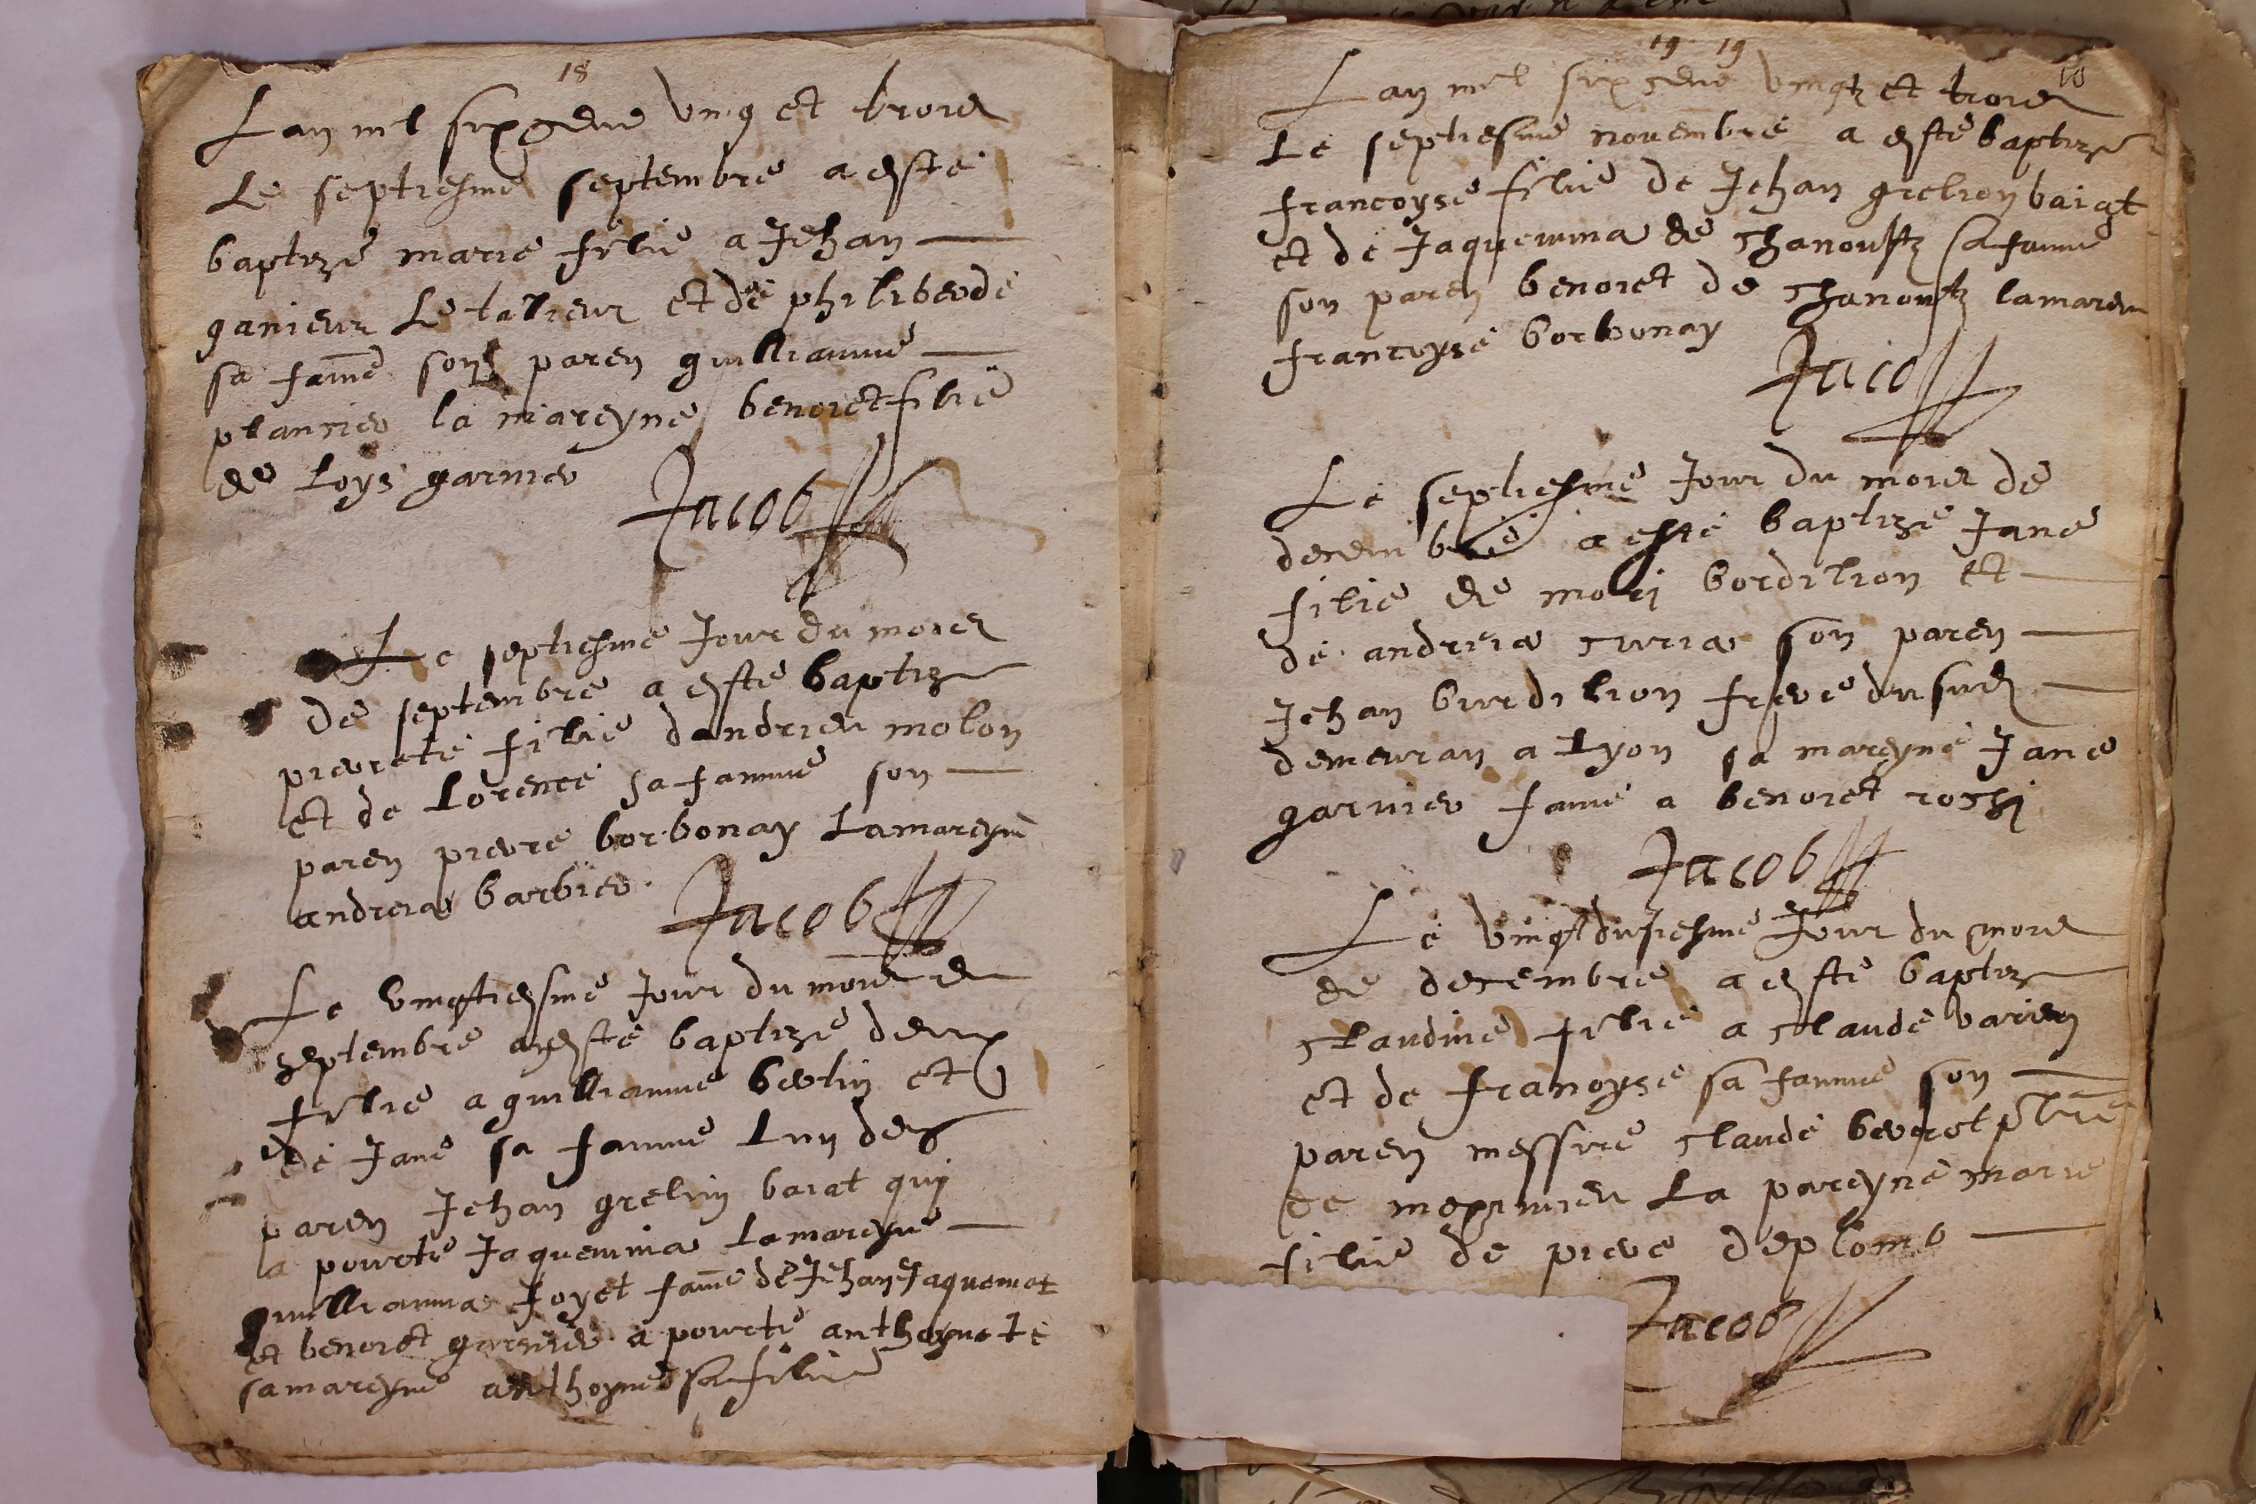 18
Lan mil six cens ving et trois
Le septiesme septembre a este
baptize marie filie a Jehan
ganieur Letalieur et de philiberde
sa fame son paren guilliaume
plancier la mareyne benoiet filie
de Loys garnier
Jacob
Le septiesme Jour du mois
de septembre a este baptize
pierete filie dandrieu molon
et de Lorence sa famme son
paren pierre borbonay Lamareyne
andreia barbier
Jacob
Le vingtiesme Jour du mois de
septembre a este baptize deux
filie a guilliaume berlin et
de Jane sa famme Lun des
paren Jehan grelion baiat qui
a pourte Jaquemina Lamareyne
guilliauma Joyet fame de Jehan Jaquemet
et benoiet garnier a pourte anthoynete
samareyne anthoyne sa filie
19 19
Lan mil six cens vingt et trois
Le septiesme novembre a este baptize
francoyse filie de Jehan grelion baiat
et de Jaquemina de chanoultz sa famme
son paren benoiet de chanoultz lamareine
francoyse borbonay
Jacob
Le septiesme Jour du mois de
decembre a este baptize Jane
filie de mori bordilion et
de andreia curia son paren
Jehan burdilion frere dusudi
demeuran a Lyon sa mareyne Jane
garnier fame a benoiet rochi
Jacob
Le vingtdusiesme Jour du mois
de decembre a este baptize
claudine filie a claude varien
et de francoyse sa famme son
paren messire claude beverot pbre
de meximieu La pareyne marie
filie de piere deplomb
Jacob